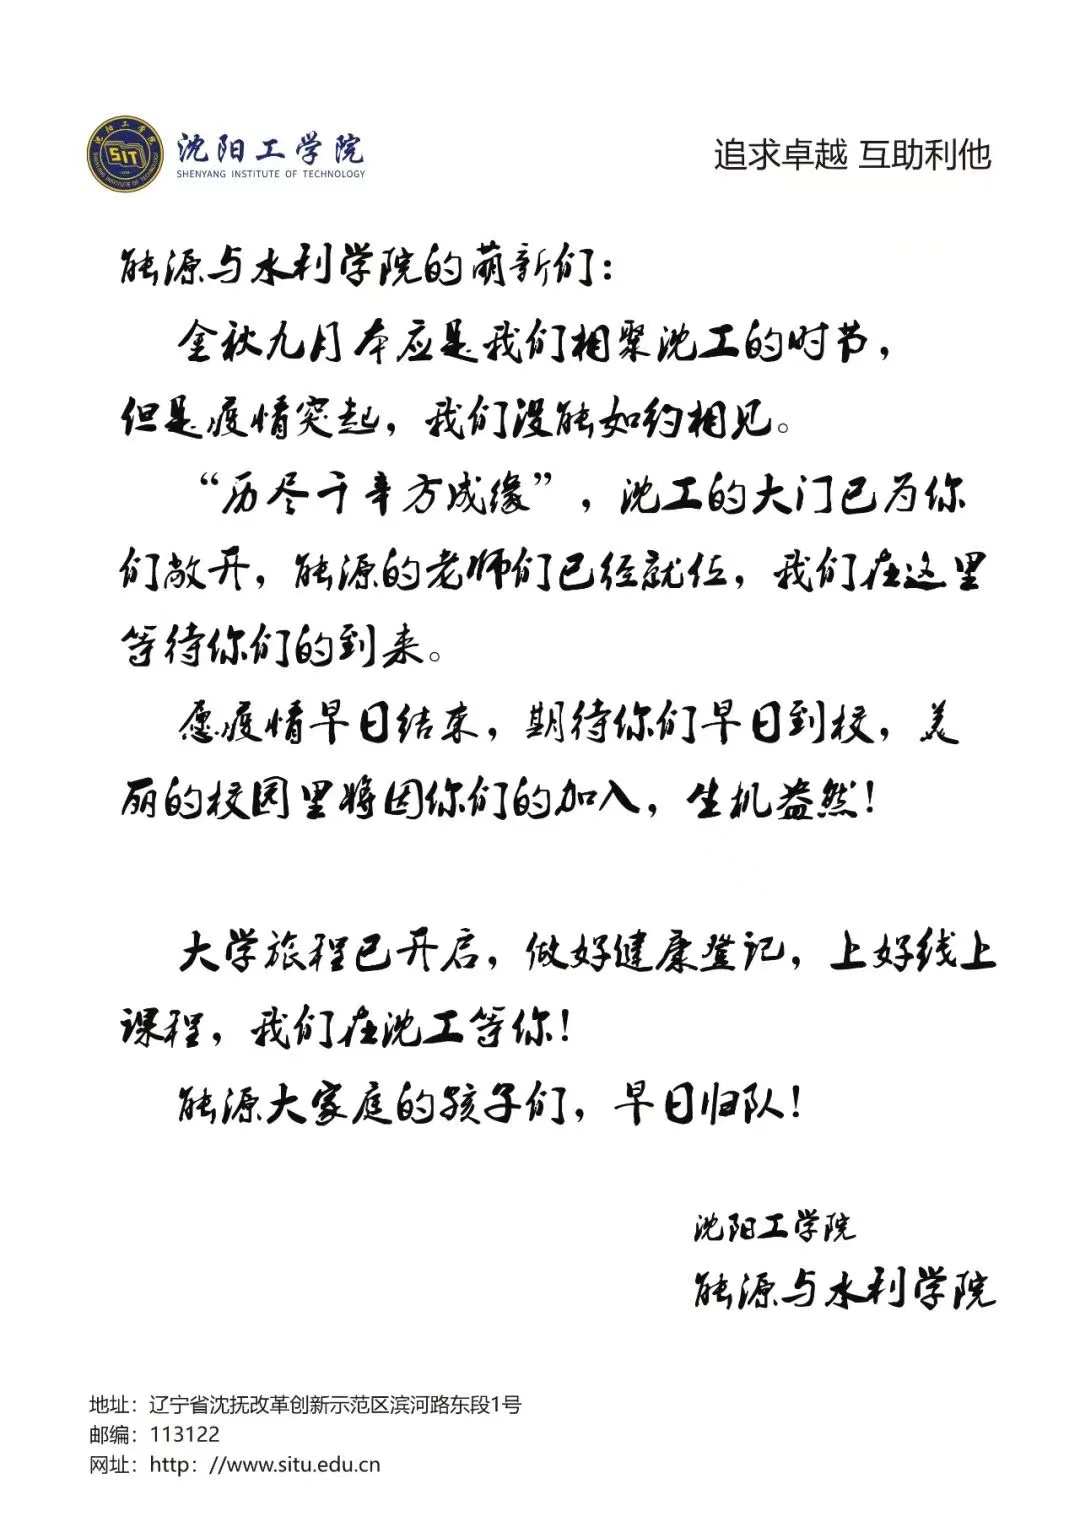 沈阳工学院
SHENYANG INSTITUTE OF TECHNOLOGY
追求卓越 互助利他
能源与水利学院的萌新们：
金秋九月本应是我们相聚沈工的时节，
但是疫情突起，我们没能如约相见。
“历尽千辛方成缘”，沈工的大门已为你
们敞开，能源的老师们已经就位，我们在这里
等待你们的到来。
愿疫情早日结束，期待你们早日到校，美
丽的校园里将因你们的加入，生机盎然！
大学旅程已开启，做好健康登记，上好线上
课程，我们在沈工等你！
能源大家庭的孩子们，早日归队！
沈阳工学院
能源与水利学院
地址：辽宁省沈抚改革创新示范区滨河路东段1号
邮编：113122
网址：http：//www.situ.edu.cn